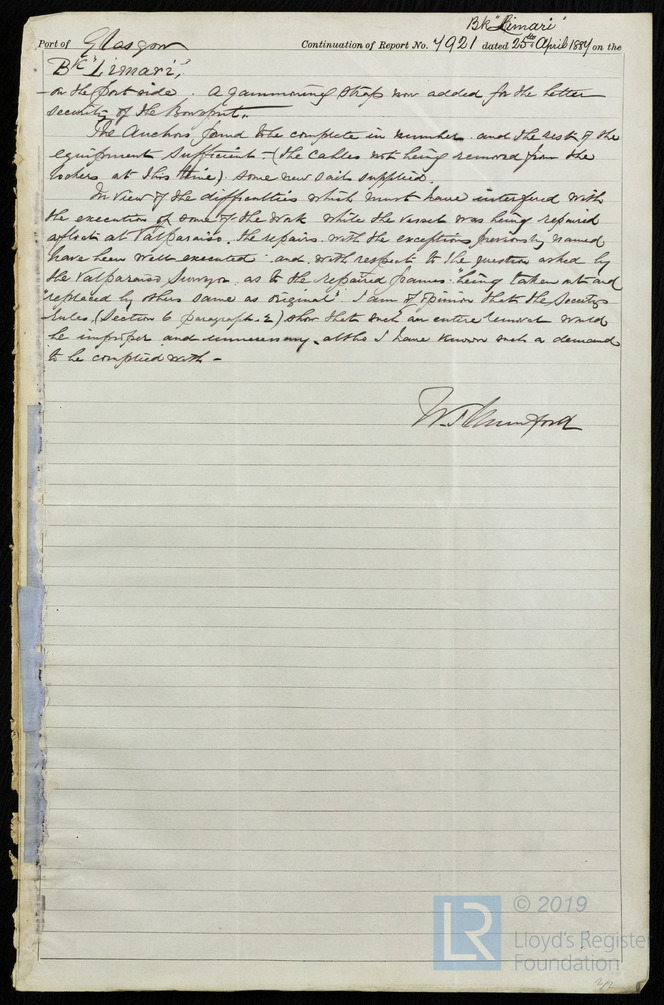 Bk "Limari"
Port of Glasgow Continuation of Report No. 7921 dated 25th April 1884 on the
Bk "Limari",
on the port side. A gammoning strap now added for the better
security of the Bowsprit.
The Anchors found to be complete in number and the rest of the
equipment sufficient - (the cables not being removed from the
lockers at this time). some new sails supplied.
In view of the difficulties which must have interfered with
the execution of some of the work while the vessel was being repaired
afloat at Valparaiso, the repairs with the exceptions previously named
have been well executed. and with respect to the question asked by
the Valparaiso Surveyor, as to the repaired frames "being taken out and
"replaced by others same as original". I am of opinion that the Society's
rules, (Section 6 paragraph 2) show that such an entire removal would
be improper and unnecessary, altho I have known such a demand
to be complied with -
© 2019
LR
Lloyd's Register
Foundation